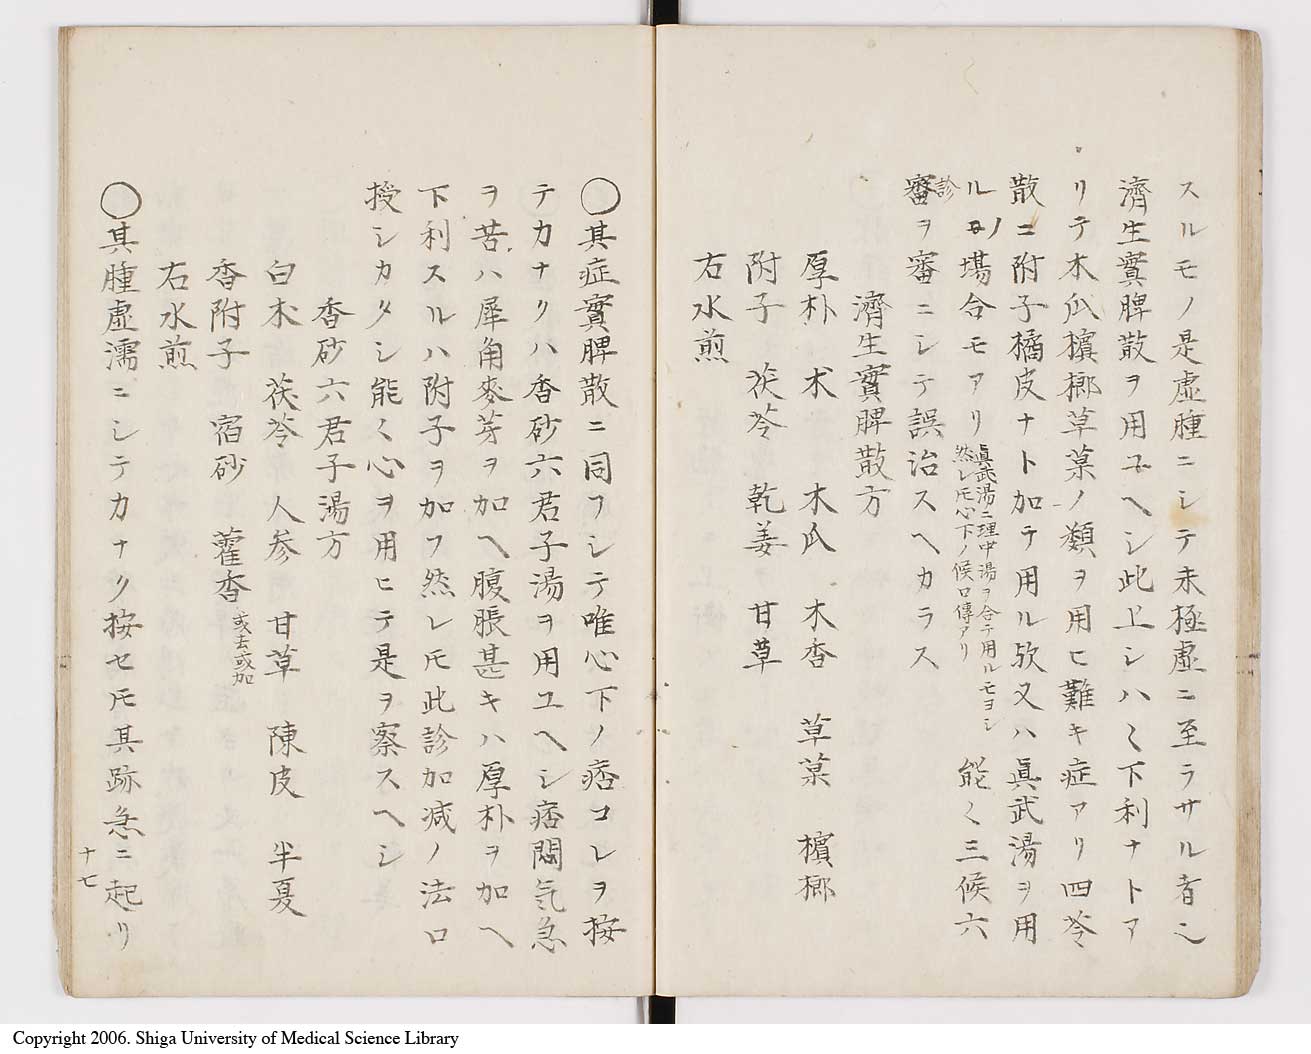 スルモノ是虚腫ニシテ未極虚ニ至ラサル者也
濟生實脾散ヲ用ユヘシ此上シハ〱下利ナトア
リテ木瓜檳榔草菓ノ類ヲ用ヒ難キ症アリ四苓
散ニ附子橘皮ナト加テ用ル歟又ハ眞武湯ヲ用
ルノ塲合モアリ
眞武湯ニ理中湯ヲ合テ用ルモヨシ
然レ𪜈心下ノ候口傳アリ
能〱三候六
診
審ヲ審ニシテ誤治スヘカラス
濟生實脾散方
厚朴 朮 木瓜 木香 草菓 檳榔
附子 茯苓 乾姜 甘草
右水煎
〇其症實脾散ニ同フシテ唯心下ノ痞コレヲ按
テカナリハ香砂六君子湯ヲ用ユヘシ痞悶気急
ヲ苦ハ犀角麥芽ヲ加ヘ腹脹甚キハ厚朴ヲ加ヘ
下利スルハ附子ヲ加フ然レ𪜈此診加減ノ法口
授シカタシ能く心ヲ用ヒテ是ヲ察スヘシ
香砂六君子湯方
白朮 茯苓 人参 甘草 陳皮 半夏
香附子 宿砂 藿香
或去或加
右水煎
〇其腫虚濡ニシテカナリ按セ𪜈其跡急ニ起リ
十七
Copyright 2006. Shiga University of Medical Science Library